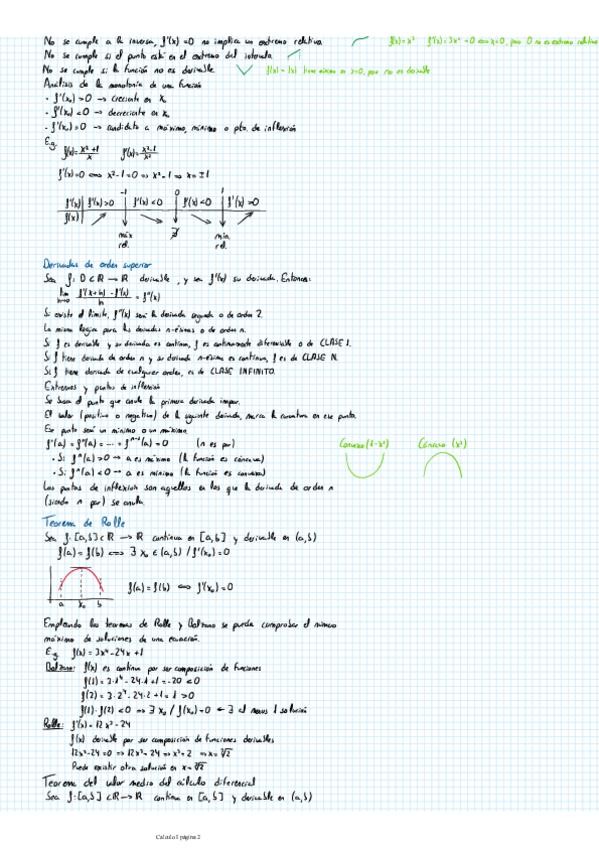 No se cumple a la inversa, f'(x)=0 no implica un extremo relativo. f(x)=x³ f'(x)=3x²=0 ⟺ x=0, pero 0 no es extremo relativo
No se cumple si el punto está en el extremo del intervalo.
No se cumple si la función no es derivable f(x)=|x| tiene mínimo en x=0, pero no es derivable
Análisis de la monotonía de una función
· f'(x₀)>0 → creciente en x₀
· f'(x₀)<0 → decreciente en x₀
· f'(x₀)=0 → candidato a máximo, mínimo o pto. de inflexión
Eg. f(x)=x²+1/x f'(x)=x²-1/x²
f'(x)=0 ⟺ x²-1=0 ⇒ x²=1 ⇒ x=±1
-1 0 1
f'(x) f'(x)>0 f'(x)<0 f'(x)<0 f'(x)>0
f(x)
máx ∄ mín
rel. rel.
Derivadas de orden superior
Sea f: D⊂ℝ → ℝ derivable, y sea f'(x) su derivada. Entonces:
lim h→0 f'(x+h)-f'(x)/h = f''(x)
Si existe el límite, f''(x) será la derivada segunda o de orden 2.
La misma lógica para las derivadas n-ésimas o de orden n.
Si f es derivable y su derivada es continua, f es continuamente diferenciable o de CLASE 1.
Si f tiene derivada de orden n y su derivada n-ésima es continua, f es de CLASE N.
Si f tiene derivada de cualquier orden, es de CLASE INFINITO.
Extremos y puntos de inflexión
Se busca el punto que anule la primera derivada impar.
El valor (positivo o negativo) de la siguiente derivada, marca la curvatura en ese punto.
Ese punto será un mínimo o un máximo.
f'(a)=f''(a)=...=fⁿ⁻¹(a)=0 (n es par) Convexa (-x²) Cóncava (x²)
· Si fⁿ(a)>0 → a es máximo (la función es cóncava)
· Si fⁿ(a)<0 → a es mínimo (la función es convexa)
Los puntos de inflexión son aquellos en los que la derivada de orden n
(siendo n par) se anula.
Teorema de Rolle
Sea f:[a,b]⊂ℝ → ℝ continua en [a,b] y derivable en (a,b)
f(a)=f(b) ⟺ ∃ x₀ ∈ (a,b) / f'(x₀)=0
f(a)=f(b) ⟺ f'(x₀)=0
a x₀ b
Empleando los teoremas de Rolle y Bolzano se puede comprobar el número
máximo de soluciones de una ecuación.
Eg. f(x)=3x⁴-24x+1
Bolzano: f(x) es continua por ser composición de funciones
f(1)=3·1⁴-24·1+1=-20<0
f(2)=3·2⁴-24·2+1=1>0
f(1)·f(2)<0 ⇒ ∃ x₀ / f(x₀)=0 ← ∃ al menos 1 solución
Rolle: f'(x)=12x³-24
f(x) derivable por ser composición de funciones derivables
12x³-24=0 ⇒ 12x³=24 ⇒ x³=2 ⇒ x=∛2
Puede existir otra solución en x=∛2
Teorema del valor medio del cálculo diferencial
Sea f:[a,b]⊂ℝ → ℝ continua en [a,b] y derivable en (a,b)
Calculo I página 2